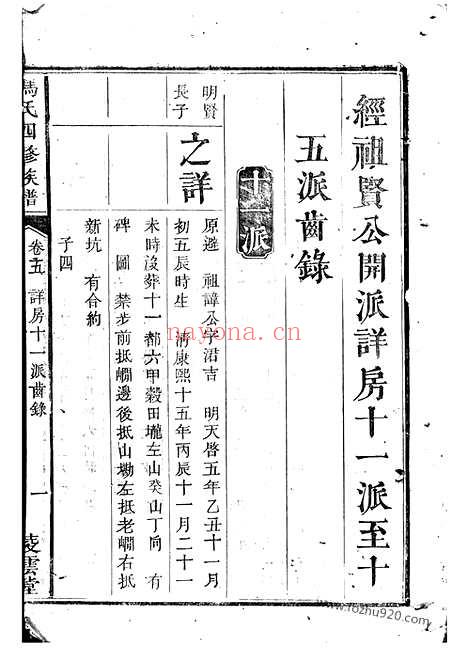 經祖賢公開派詳房十一派至十
五派齒錄
十一派
明賢
長子
之詳
原避 祖諱公字湛吉 明天啓五年乙丑十一月
初五辰時生 清康熙十五年丙辰十一月二十一
未時沒葬十一都六甲穀田壠左山癸山丁向 有
碑 圖 禁步前抵㘖邊後抵山塝左抵老㘖右抵
新坑 有合約
子四
馮氏四修族譜
卷五 詳房十一派齒錄
一
凌雲堂
nayona.cn
www.fozhu920.com